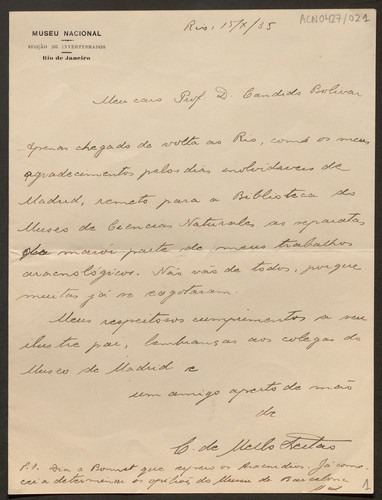 ACN0427/021
MUSEU NACIONAL
SECÇÃO DE INVERTEBRADOS
Rio de Janeiro
Rio, 15/X/35
Meu caro Prof. D. Candido Bolivar
Apenas chegado de volta ao Rio, com os meus
agradecimentos pelos dias inolvidaveis de
Madrid, remeto para a Biblioteca do
Museo de Ciencias Naturales as separatas
da maior parte de meus trabalhos
aracnológicos. Não vão de todos, porque
muitas já se esgotaram.
Meus respeitosos cumprimentos a seu
ilustre pai, lembranças aos colegas do
Museo de Madrid e
um amigo aperto de mão
de
C. de Mello Leitão
P.S. Diga a Bonnet que os
Já come
cei a determinar os opiliões do Museu de Barcelona
1